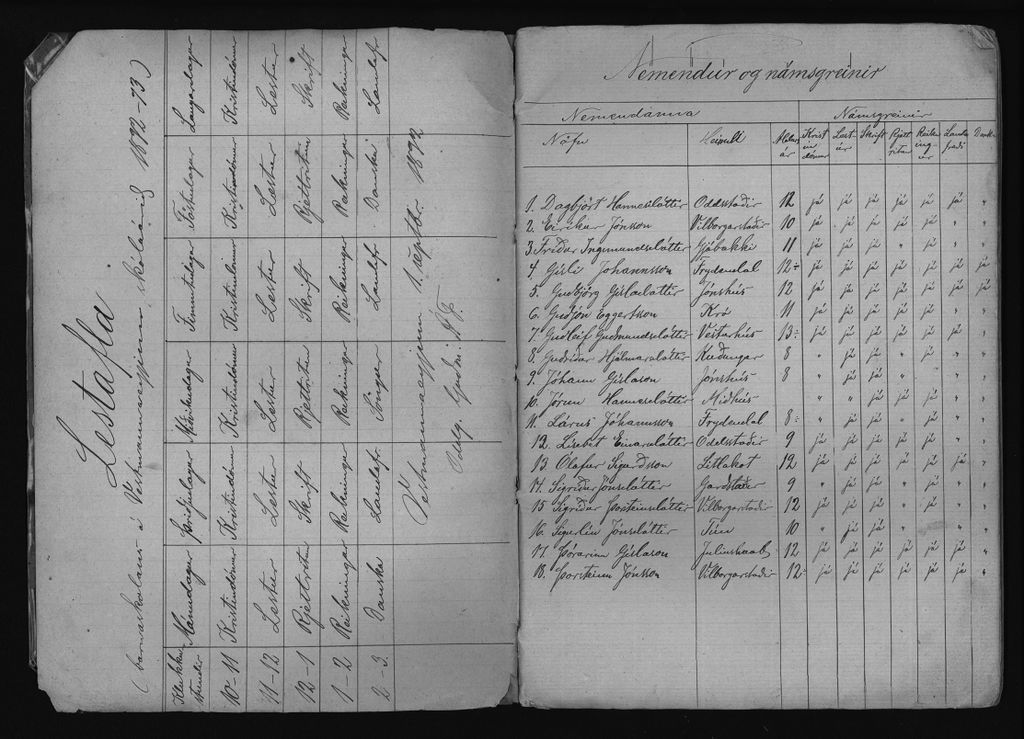 Lestafla
(barnaskólans á Vestmannaeyjum skólaárið 1892-93)
Klukkustundir Mánudagur Þriðjudagur Miðvikudagur Fimmtudagur Föstudagur Laugardagur
10-11 Kristindómur Kristindómur Kristindómur Kristindómur Kristindómur Kristindómur
11-12 Lestur Lestur Lestur Lestur Lestur Lestur
12-1 Rjettritun Skrift Rjettritun Skrift Rjettritun Skrift
1-2 Reikningur Reikningur Reikningur Reikningur Reikningur Reikningur
2-3. Danska Landafr. Söngur Landafr. Danska Landafr.
Vestmannaeyjum 1. septbr. 1892
Nemendur og námsgreinir
Nemendanna Námsgreinir
Nöfn Heimili Aldurs ár Kristindómur Lestur Skrift Rjettritun Reikningur Landafræði Danska
1. Dagbjört Hannesdóttir Oddsstaðir 12 já já já já já já "
2. Eiríkur Jónsson Vilborgarstaðir 10 já já já já já já "
3. Fríður Ingimundsdóttir Gjábakki 11 já já já " já já "
4. Gísli Johannsson Frydendal 12÷ já já já já já já já
5. Guðbjörg Gísladóttir Jónshús 12 já já já já já já já
6. Guðjón Eggertsson Kró 11 já já já já já já "
7. Guðleif Guðmundsdóttir Vesturhús 13÷ já já já já já já "
8. Guðríður Hjálmarsdóttir Kuðungur 8 " já já " já " "
9. Jóhann Gíslason Jónshús 8 " já já já já " "
10. Jórun Hannesdóttir Miðhús " " já já já " "
11. Lárus Jóhannsson Frydendal 8÷ " já já já já " "
12. Lísebet Einarsdóttir Oddsstaðir 9 já já já já já já "
13 Ólafur Sigurðsson Litlakot 12 já já já já já já "
14. Sigríður Jónsdóttir Garðstaðir 9 " já já já já " "
15 Sigríður Þorsteinsdóttir Vilborgarstaðir 12 já já já já já já "
16. Sigurlín Jónsdóttir Túni 10 " já já " já " "
17. Þórarinn Gíslason Juliushaab 12 já já já já já já "
18. Þorsteinn Jónsson Vilborgarstaðir 12÷ já já já já já já "